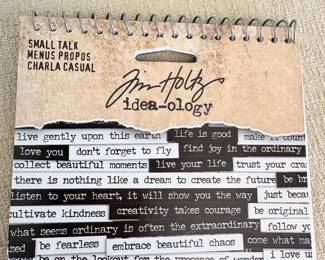 SMALL TALK
MENUS PROPOS
CHARLA CASUAL
Tim Holtz
idea-ology
live gently upon this earth life is good make it count
love you don't forget to fly find joy in the ordinary
collect beautiful moments live your life trust your
there is nothing like a dream to create the future be
listen to your heart, it will show you the way just
cultivate kindness creativity takes courage be original
what seems ordinary is often the extraordinary follow
be fearless embrace beautiful chaos come what
be on the lookout for the presence of wonder